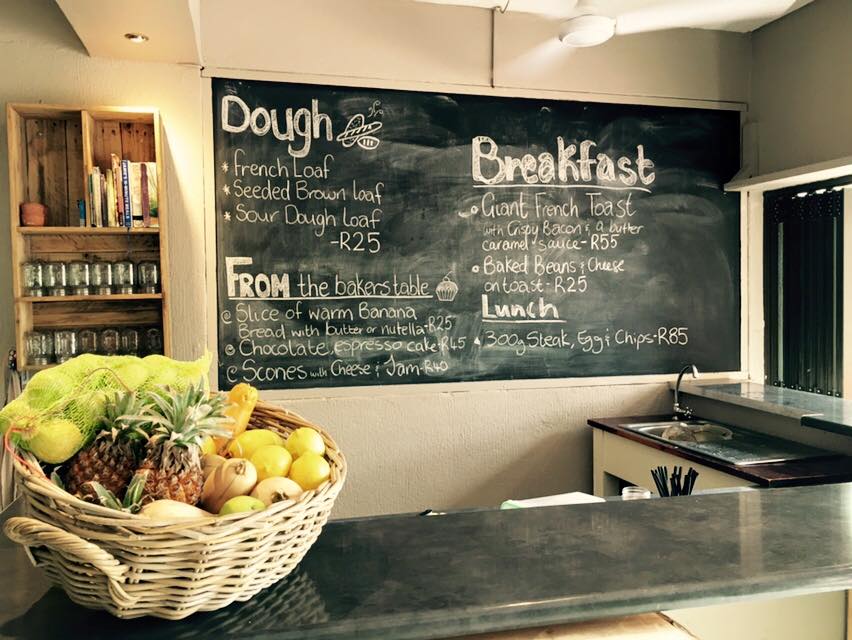 Dough
* French Loaf
* Seeded Brown loaf
* Sour Dough Loaf
-R25
FROM the bakers table
Slice of warm Banana
Bread with butter or nutella-R25
Chocolate espresso cake-R45
Scones with Cheese & Jam-R40
Breakfast
Giant French Toast
with Crispy Bacon & a butter
caramel sauce-R55
Baked Beans & Cheese
on toast-R25
Lunch
300g Steak, Egg & Chips-R85